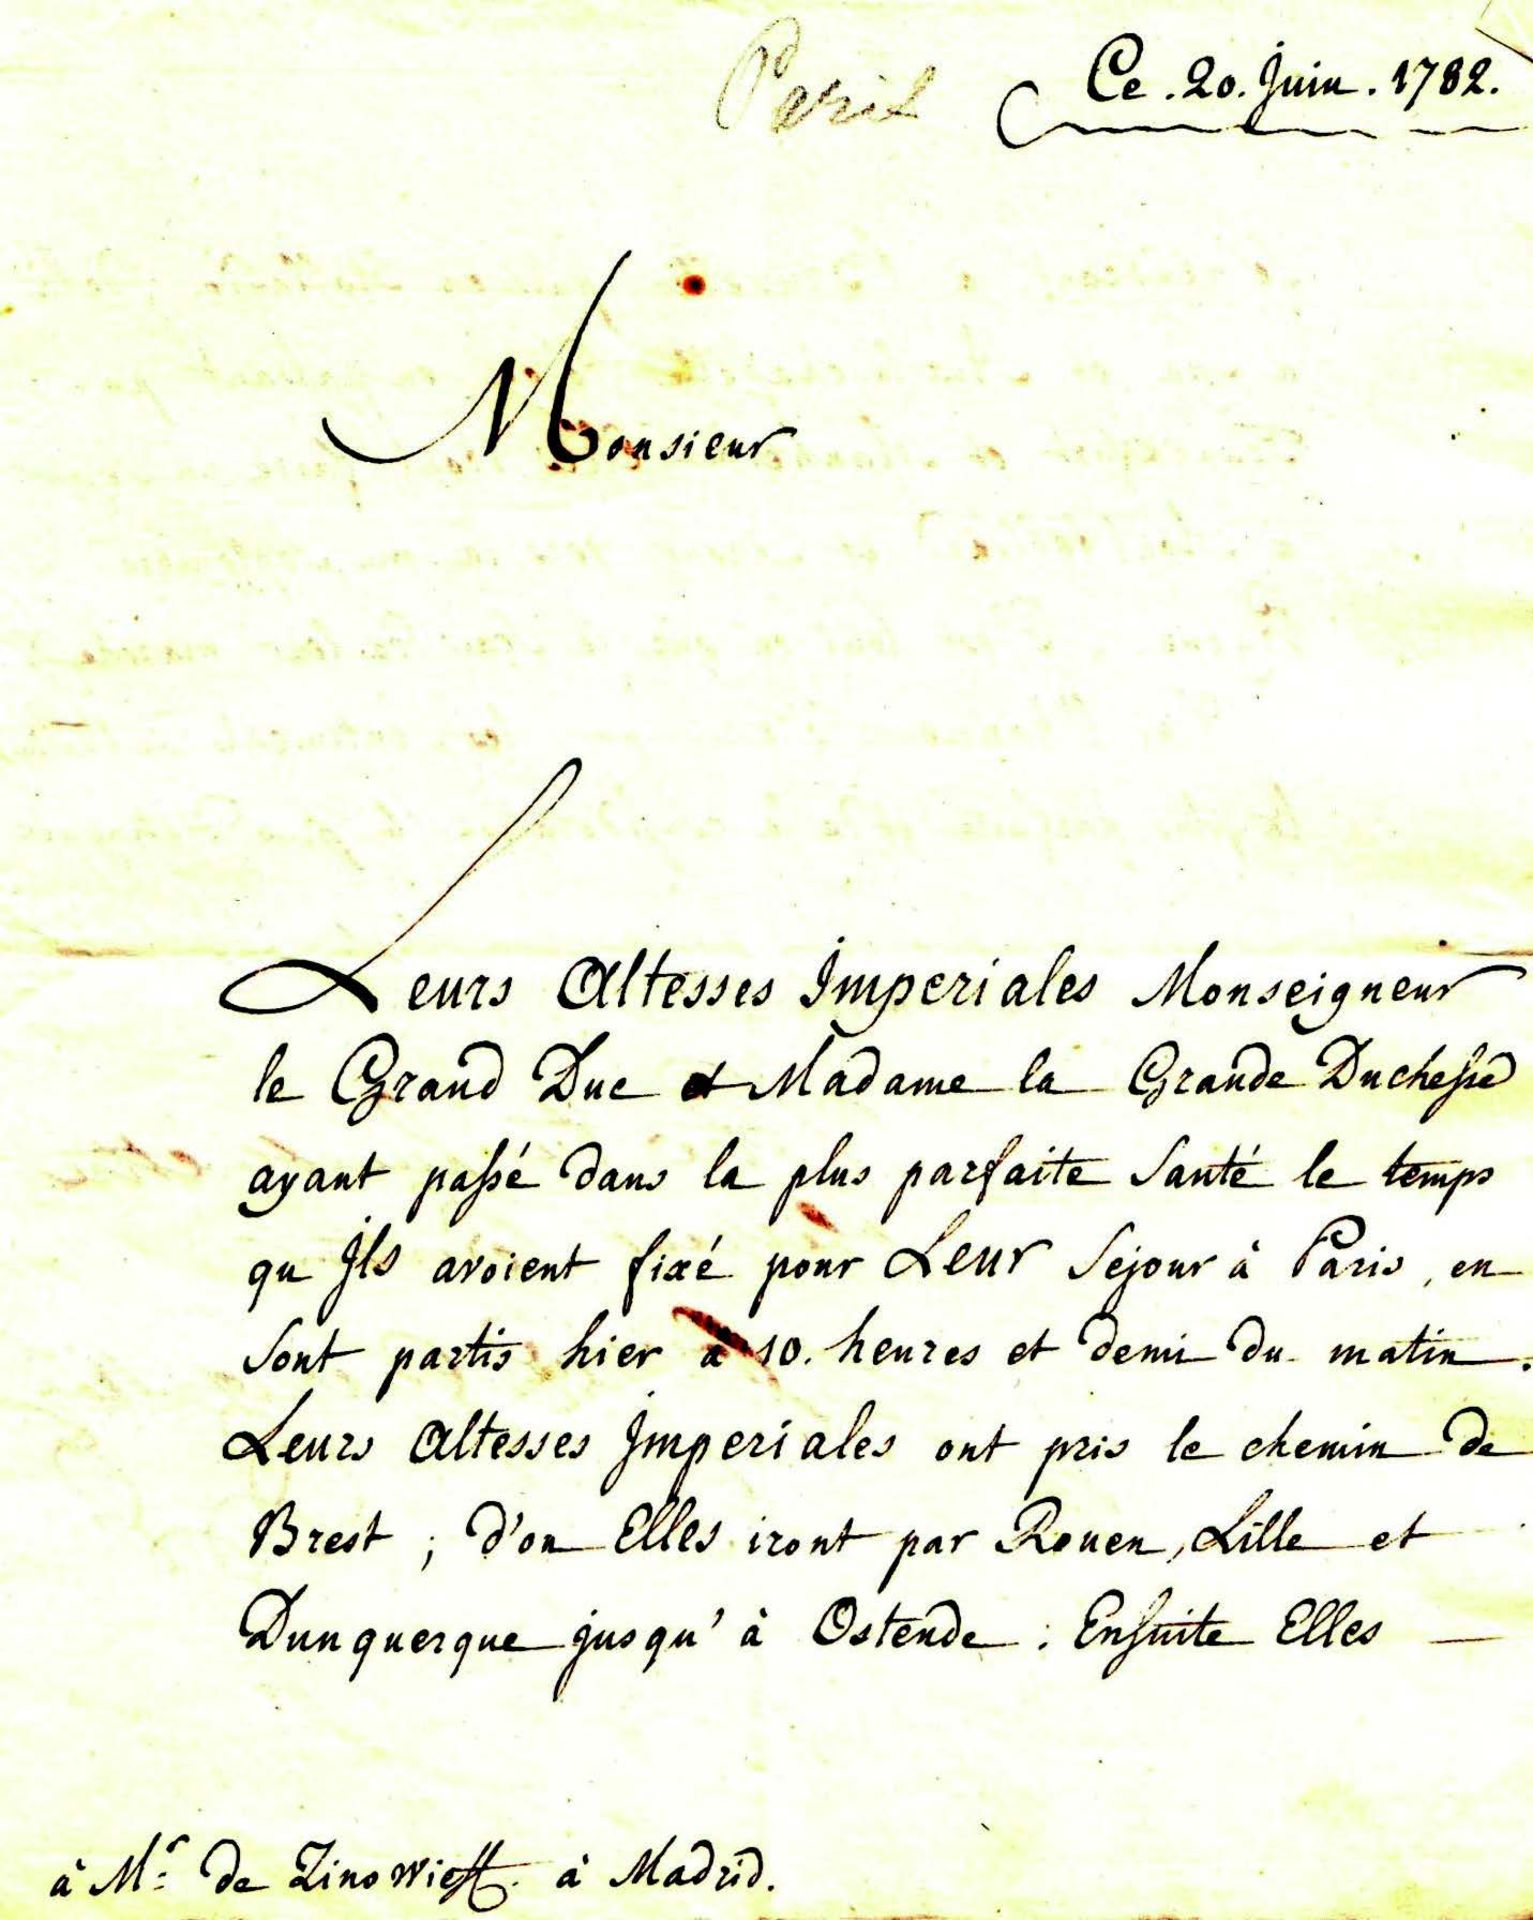 Paris
Ce . 20. Juin . 1782.
Monsieur
Leurs Altesses Imperiales Monseigneur
le Grand Duc et Madame la Grande Duchesse
ayant passé dans la plus parfaite Santé le temps
qu Ils avoient fixé pour Leur Sejour à Paris, en
Sont partis hier à 10. heures et demi du matin.
Leurs Altesses Imperiales ont pris le chemin de
Brest ; d'ou Elles iront par Rouen, Lille et
Dunquerque jusqu'à Ostende : Ensuite Elles
à Mr: de Zinowieff. à Madrid.